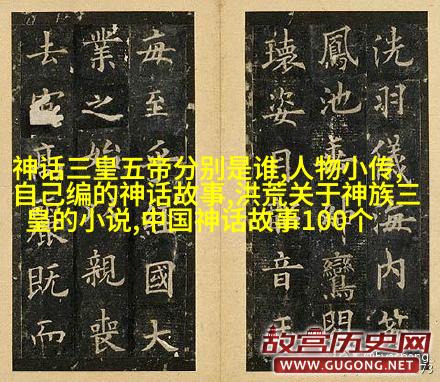 洗羽儀海內
鳳池
瓌姿音
每至國大
業之始親喪
去既而
神话三皇五帝分别是谁,人物小传,
自己编的神话故事,洪荒关于神族三
皇的小说,中国神话故事100个
故宫历史网
WWW.GUGONG.NET